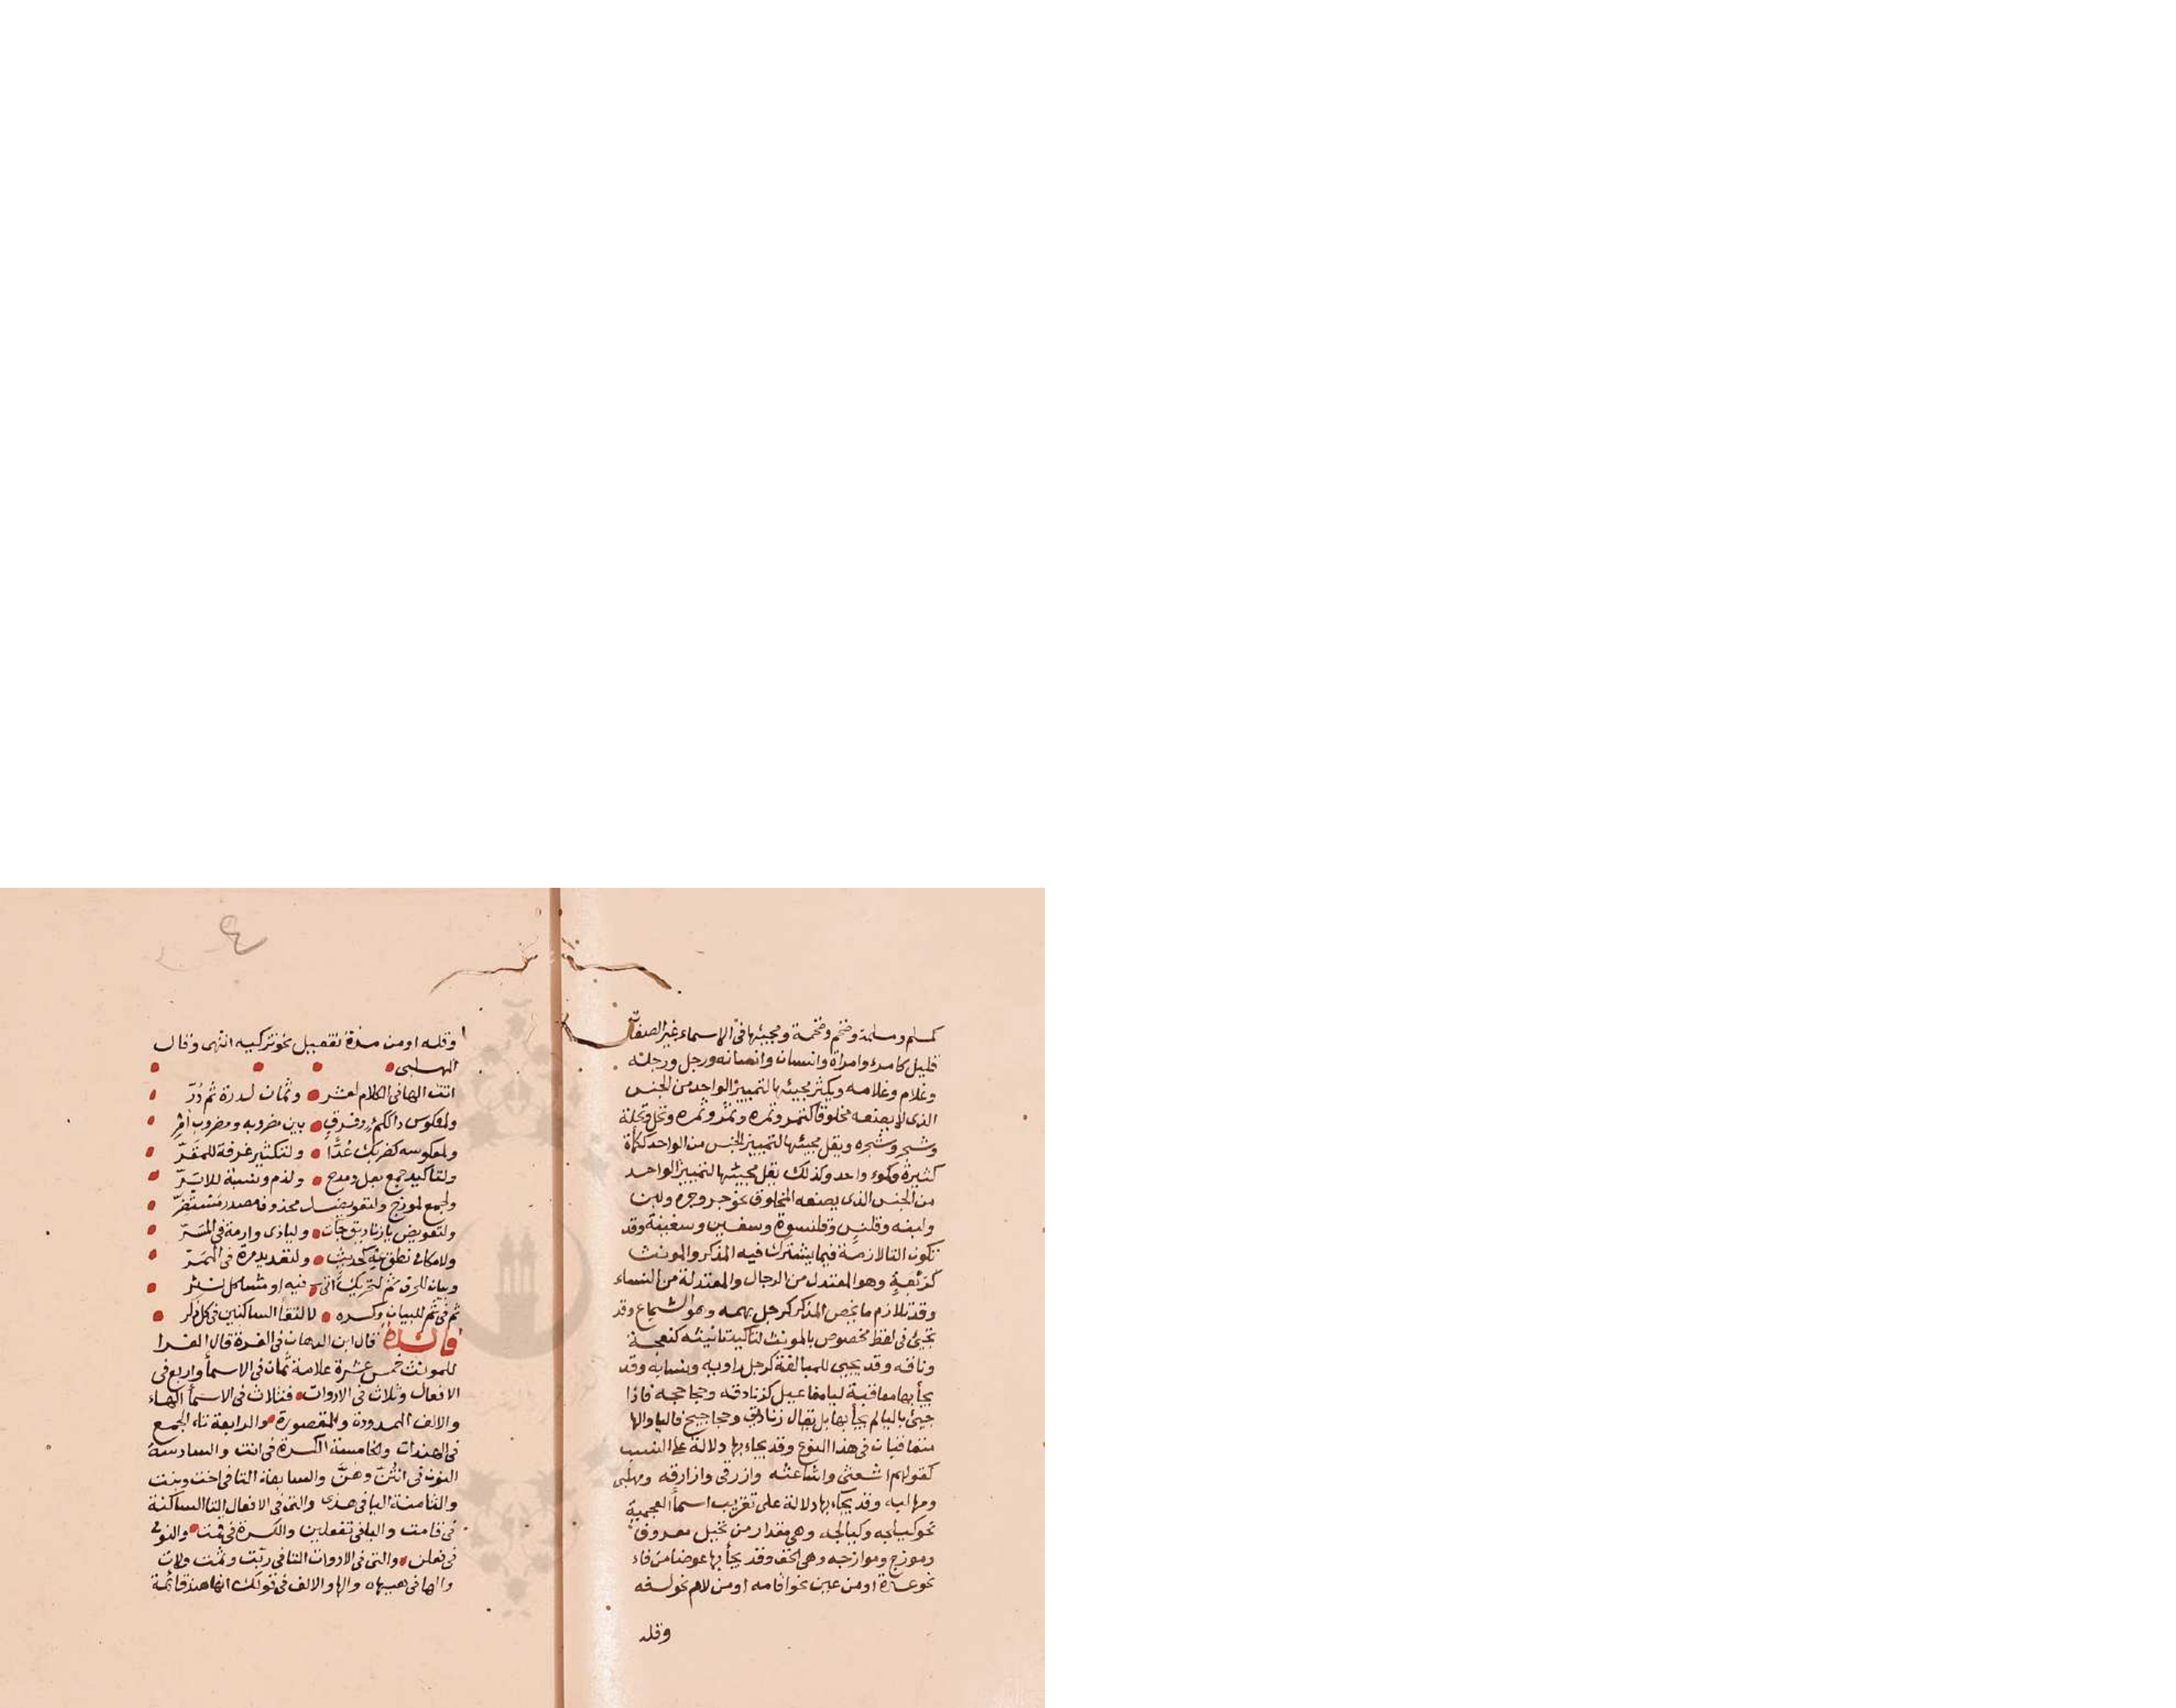 كمسلم ومسلمة وضخم وضخمة ومجيئها فى الاسماء غير الصفات
قليل كامرء وامراة وانسان وانسانه ورجل ورجله
وغلام وغلامه ويكثر مجيئها لتمييز الواحد من الجنس
الذى لا يصنعه مخلوق كتمر وتمره ونخل ونخلة
وشجر وشجره ويقل مجيئها لتمييز الجنس من الواحد ككمأة
كثيرة وكموء واحد وكذلك يقل مجيئها لتمييز الواحد
من الجنس الذى يصنعه المخلوق نحو جر وجره ولبن
ولبنه وقلنس وقلنسوة وسفين وسفينة وقد
تكون التا لازمة فيما يشترك فيه المذكر والمونث
كربعة وهو المعتدل من الرجال والمعتدلة من النساء
وقد تلازم ما يخص المذكر كرجل بهمه وهو الشجاع وقد
تجئ فى لفظ مخصوص بالمونث لتاكيد تانيثه كنعجة
وناقه وقد يجيى للمبالغة كرجل راويه ونسابه وقد
يجأ بها معاقبة ليا مفاعيل كزنادقه وحجاججه فاذا
جيئ باليا لم يجأ بها بل يقال زناديق وحجاجيج فاليا والها
متعاقبان فى هذا النوع وقد يجاء بها دلالة على النسب
كقولهم اشعثى واشاعثه وازرقى وازارقه ومهلبى
ومهالبه وقد يجاء بها دلالة على تعريب اسمأ العجمية
نحو كيالجه وهى مقدار من معروف
وموزج وموازجه وهى الخف وقد يجأ بها عوضا من فاء
نحو عدة او من عين نحو اقامه او من لام نحو
وقله
وقله او من مدة تفعيل نحو تزكيه انتهى وقال
المهلبى
اتت الها فى الكلام لعشر وثمان لدرة ثم در
ولمعكوس ذا الكمء وفرق بين مضروبه ومضروب
ولتكثير غرفة
ولتاكيد جمع بعل ومدح ولذم ونسبة
ولجمع لموزج ولتعويض محذوف مصدر
ولتعويض يا زناديق
ولامكان نطق ولتعديد مرة فى
وبيان للحرف ثم لتحريك فيه او مشاكل
ثم فى ثم للبيان وكسره لالتقأ الساكنين فى كل ذكر
فائدة قال ابن الدهان فى الغرة قال الفرا
للمونث خمس عشرة علامة ثمان فى الاسمأ واربع فى
الافعال وثلاث فى الادوات فثلاث فى الاسمأ الهاء
والالف الممدودة والمقصورة والرابعة تاء الجمع
فى الهندات والخامسة الكسرة فى انت والسادسة
النون فى انتن وهن والسابعة التا فى اخت وبنت
والثامنة اليا فى هذى والتى فى الافعال التا الساكنة
فى قامت واليا فى تفعلين والكسرة فى قمت والنون
فى فعلن والتى فى الادوات التا فى ربت وثمت ولات
والها فى هيهاه والها والالف فى قولك انها هند قائمة